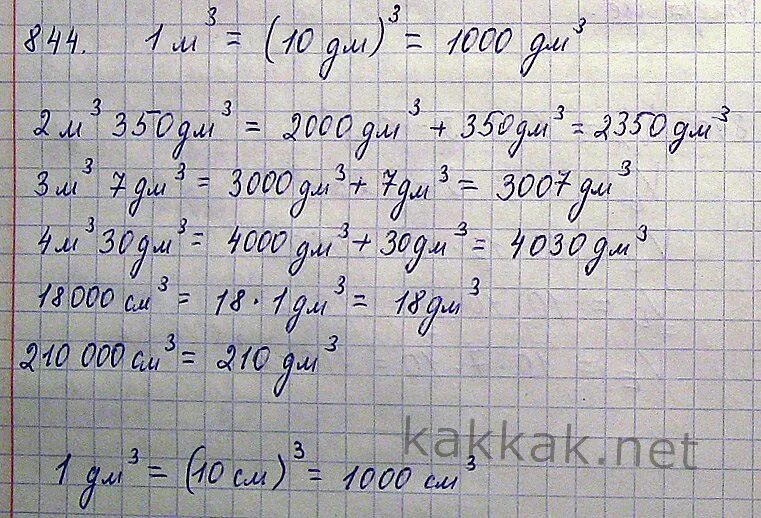 844. 1 м³ = (10 дм)³ = 1000 дм³
2 м³ 350 дм³ = 2000 дм³ + 350 дм³ = 2350 дм³
3 м³ 7 дм³ = 3000 дм³ + 7 дм³ = 3007 дм³
4 м³ 30 дм³ = 4000 дм³ + 30 дм³ = 4030 дм³
18000 см³ = 18 · 1 дм³ = 18 дм³
210 000 см³ = 210 дм³
kakkak.net
1 дм³ = (10 см)³ = 1000 см³